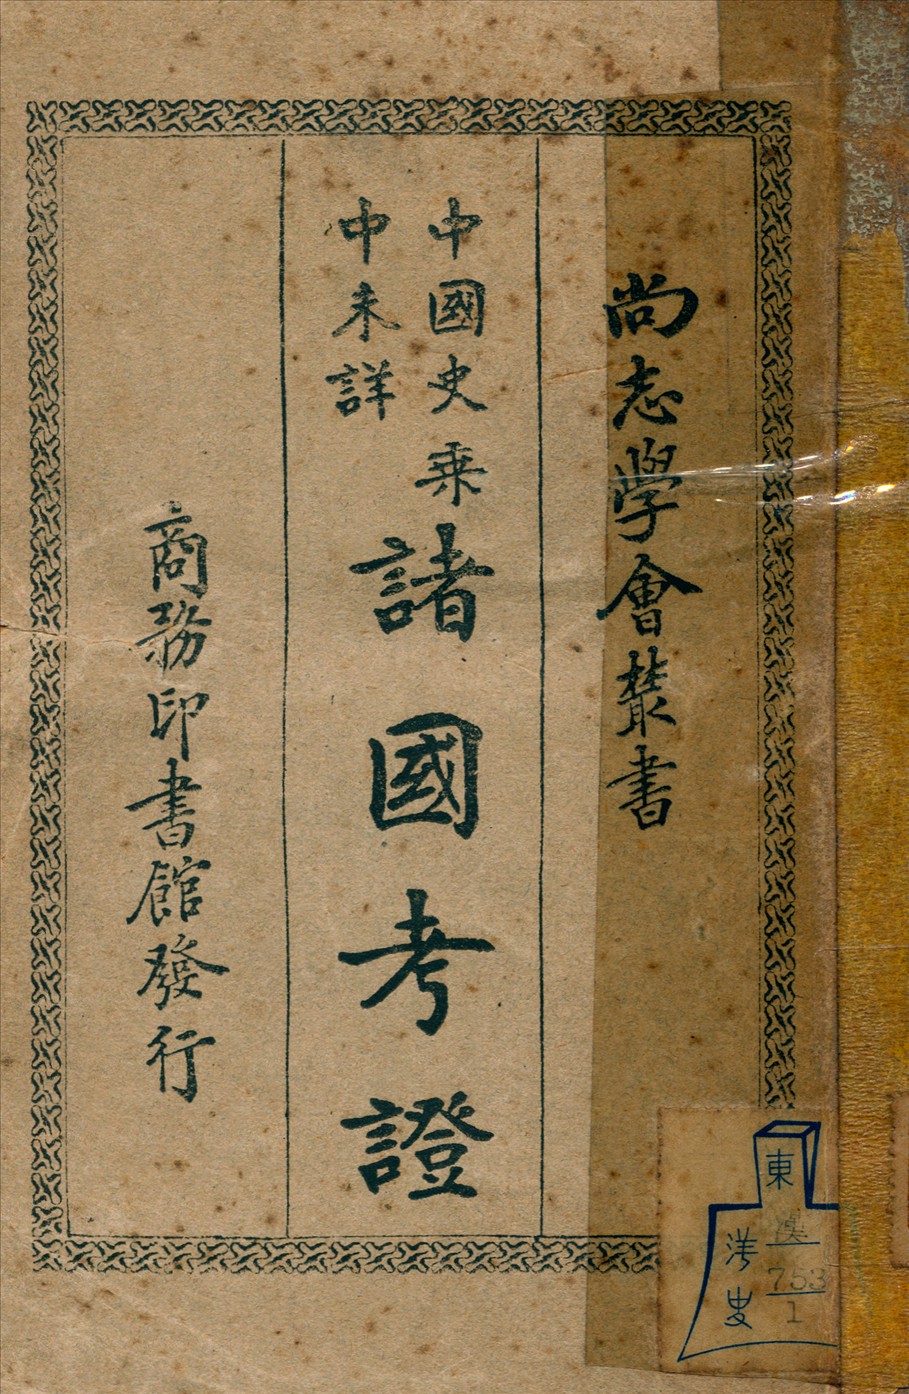 尚志學會叢書
中國史乘
中未詳
諸國考證
商務印書館發行
東
洋史
漢
753
1